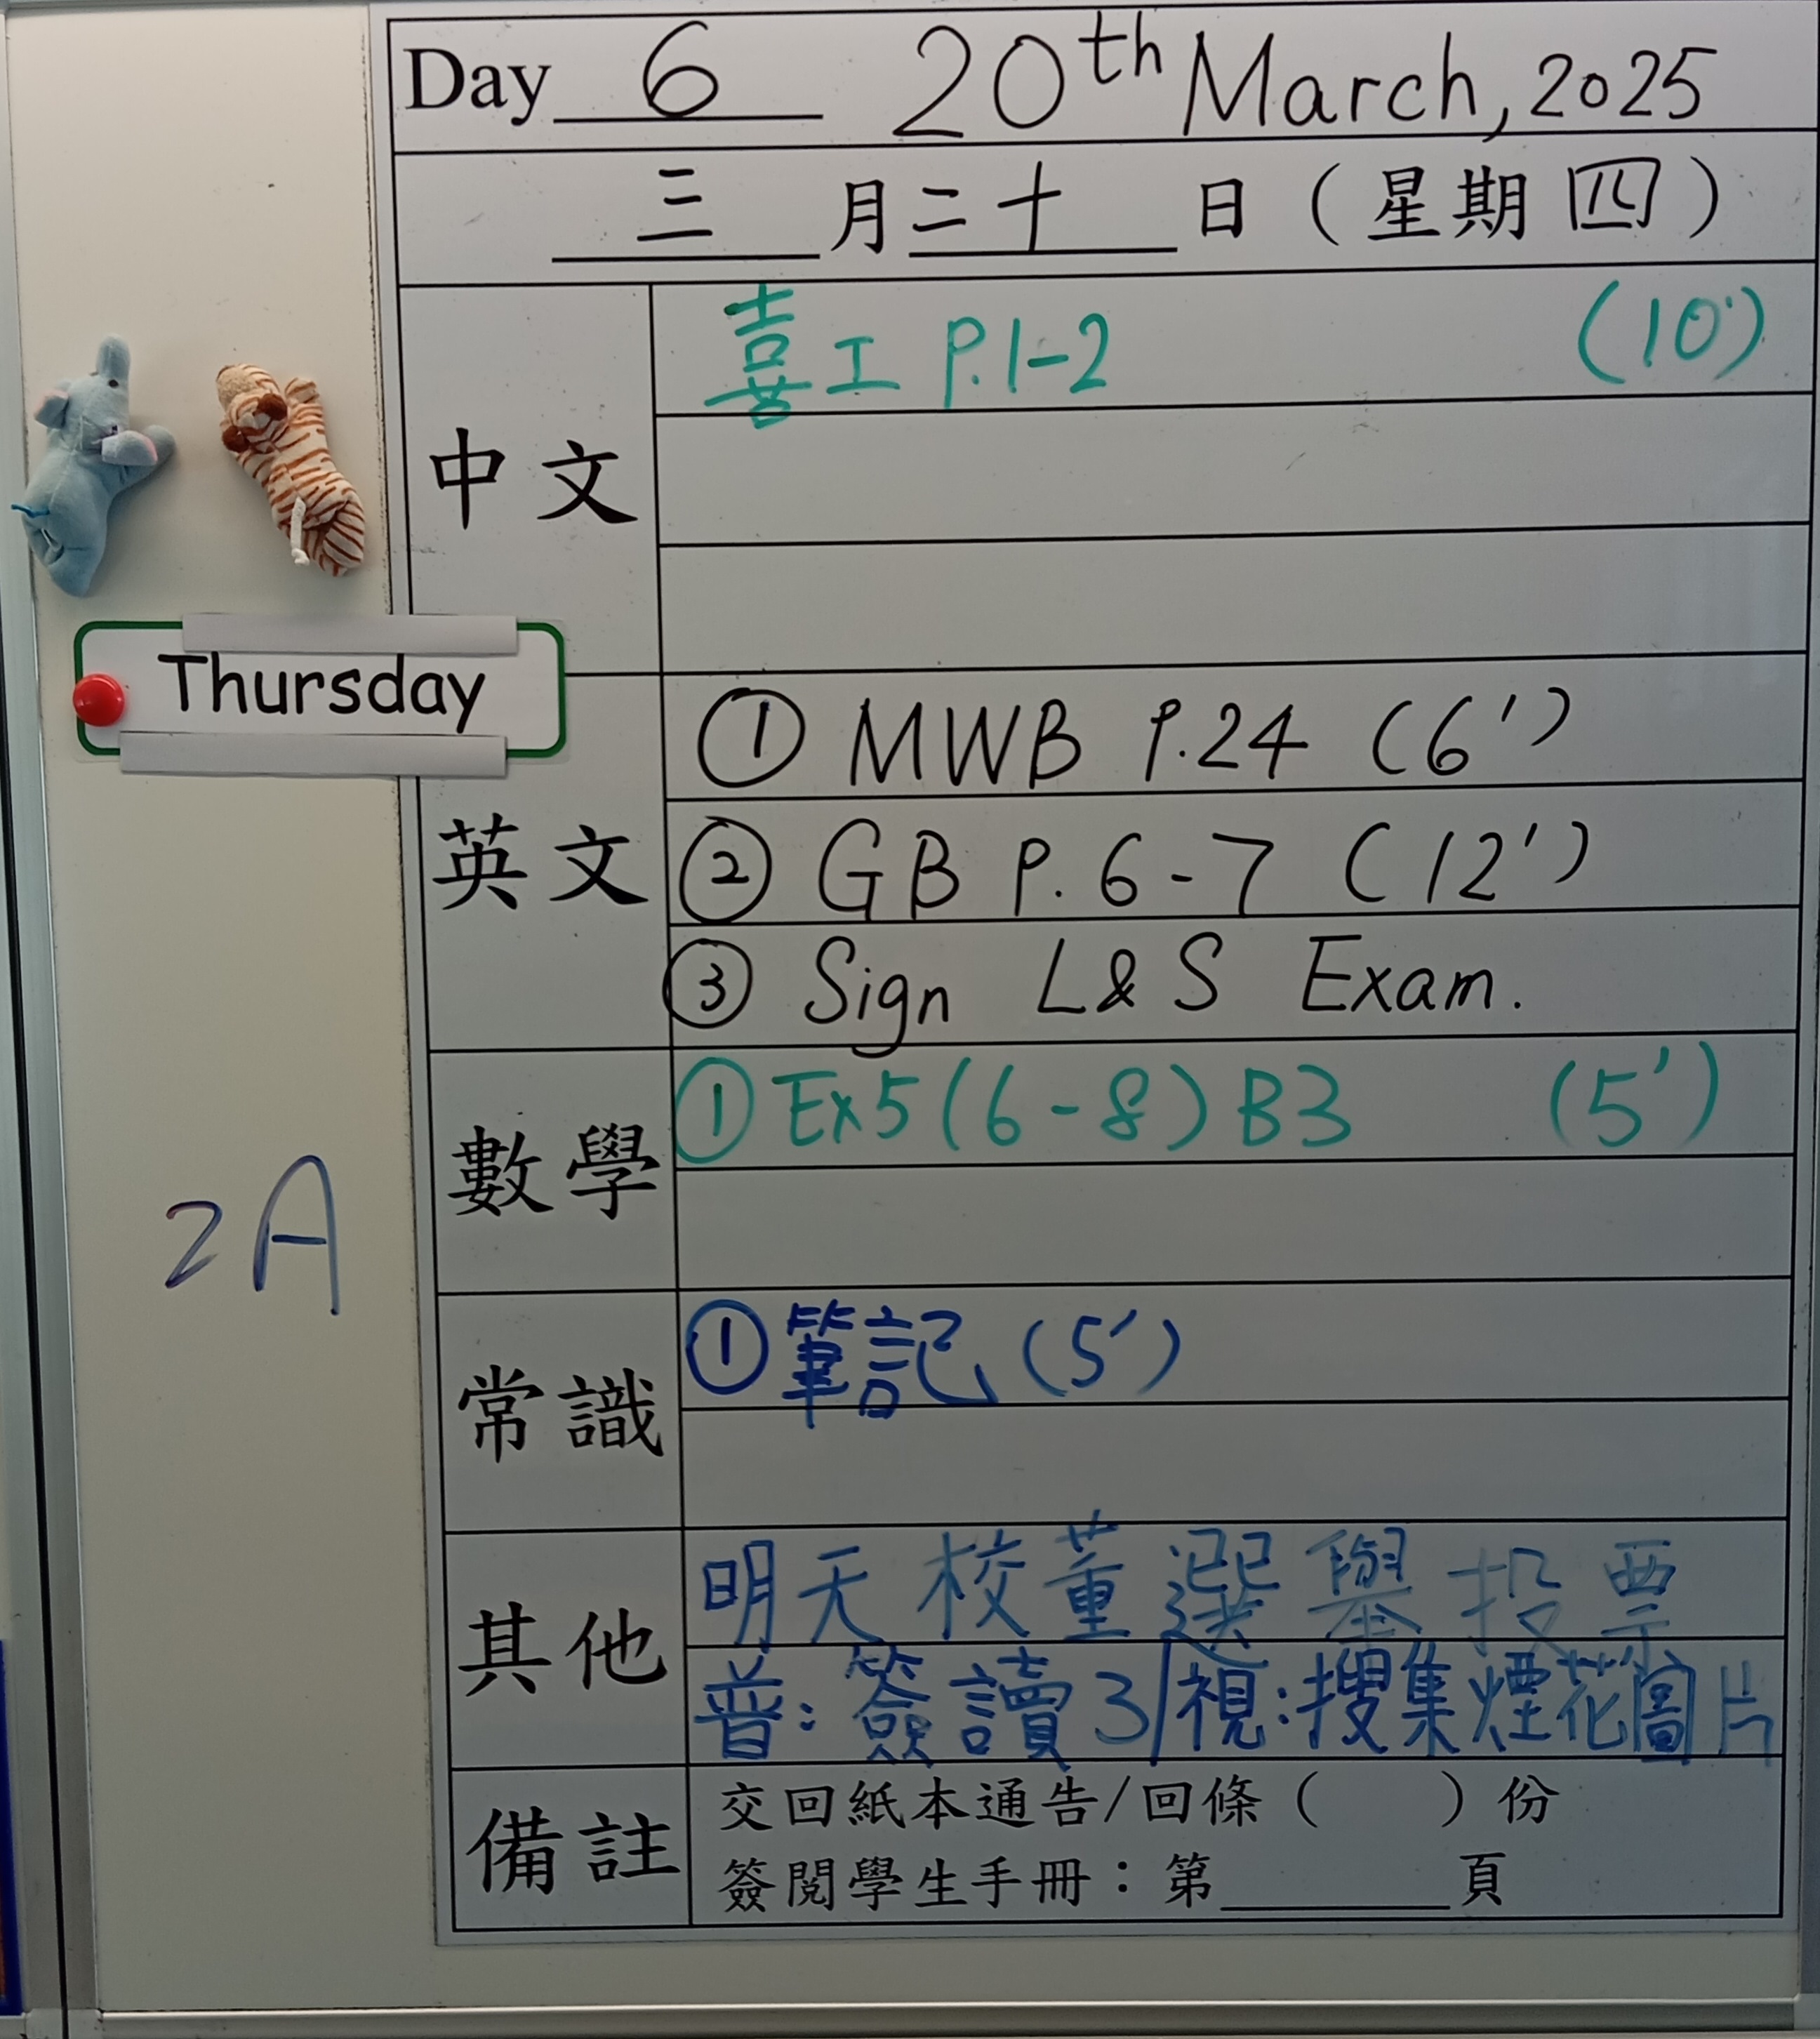 Day 6 20th March, 2025
三月二十日（星期四）
中文
喜工 P.1-2 (10')
Thursday
英文
① MWB P.24 (6')
② GB P. 6-7 (12')
③ Sign L&S Exam.
數學
① Ex5(6-8) B3 (5')
2A
常識
①筆記(5')
其他
明天校董選舉投票
普:簽讀3|視:搜集煙花圖片
備註
交回紙本通告/回條（ ）份
簽閱學生手冊：第____頁